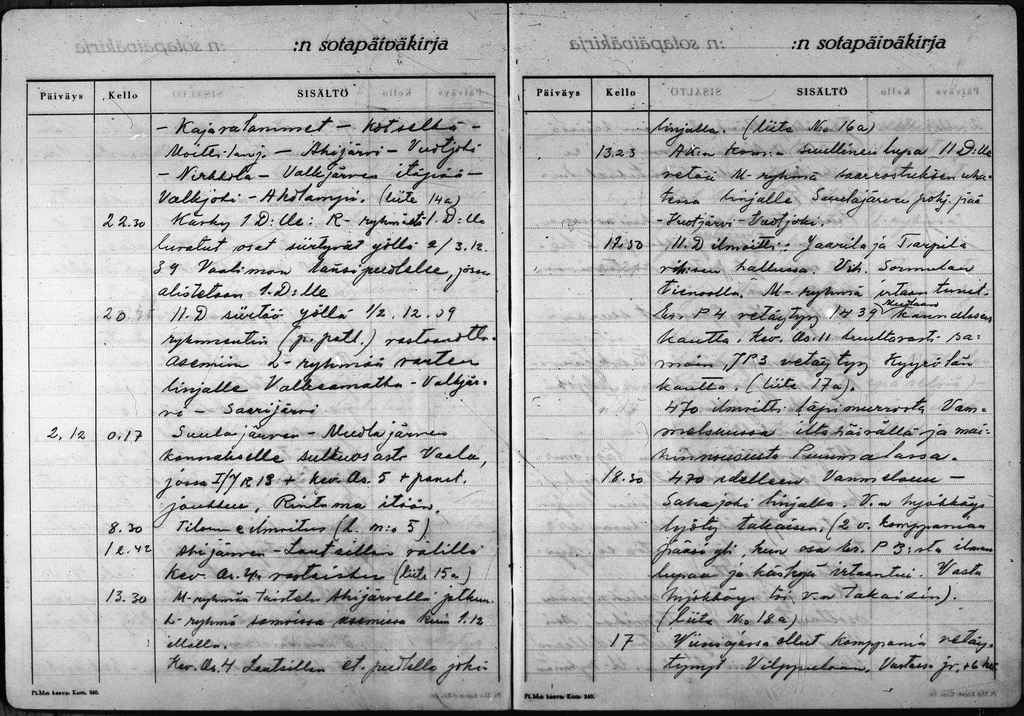 :n sotapäiväkirja
Päiväys Kello SISÄLTÖ
- Kajaralammet - Kotselkä -
- Ahijärvi - Vuotjoki
- Nirkkola - Valkjärven itäpää -
Valkjoki - Aholampi. (liite 14a)
22.30 Käsky 1 D:lle: R-ryhmästä 1. D:lle
luvatut osat siirtyvät yöllä 2/3.12.
39 Vaalimon länsipuolelle, jossa
alistetaan 1.D:lle
20. 11.D siirtää yöllä 1/2.12.39
rykmentin (p. patl.)
asemiin L-ryhmää varten
linjalle Valkjär-
vi - Saarijärvi
2.12 0.17 Suulajärven - Muolajärven
kannakselle sulkuosasto Vaala,
jossa I/JR13 + Kev. Os. 5 + panst.
joukkue, Rintama itään.
8.30 Tilanneilmoitus (l. n:o 5)
Ahijärven - Lautsillan välillä
Kev. Os. 4 (liite 15a)
13.30 M-ryhmän taistelu Ahijärvellä jatkuu.
L-ryhmä samoissa asemissa kuin 1.12
illalla.
Kev. Os. 4 Lautsillan et. puolella joki-
Pt.M:n kaava: Kom. 260.
:n sotapäiväkirja
Päiväys Kello SISÄLTÖ
linjalla. (liite N:o 16a)
13.23 AK:n kom:n suullinen lupa 11 D:lle
vetää M-ryhmä saarrostuksen uha-
tessa linjalle Suulajärven pohj. pää
- Kuotjärvi - Vuotjoki.
11.D ilmoitti: Jaarila ja Tarpila
vih:sen hallussa. Vih. Sormulan
tienoolla. M-ryhmä
Er. P 4 vetäytyy 1439 Muolaan kannaksen
kautta. Kev. Os. 11
JP3 vetäytyy Kyyrölän
kautta. (liite 17a).
470 ilmoitti läpimurrosta Vam-
melsuussa iltapäivällä ja mai-
hinnoususta Puumalassa.
18.30 470 edelleen Vammelsuu -
Sahajoki linjalla. V:n hyökkäys
lyöty takaisin. (2 v. komppaniaa
pääsi yli, kun osa Er. P 3:sta ilman
lupaa ja käskyä irtaantui. Vasta
hyökkäys löi v:n takaisin).
(liite N:o 18a)
17 ollut komppania vetäy-
tynyt Vilppulaan,
Pt.M:n kaava: Kom. 260.